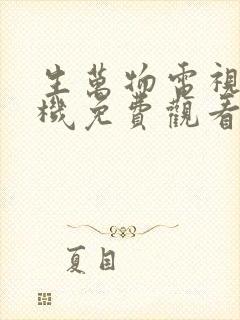 生萬物電視
機免費觀看
夏目